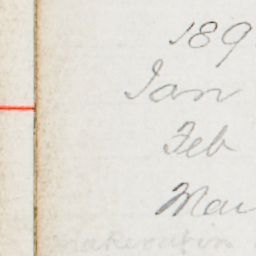 189
Jan
Feb
Mar